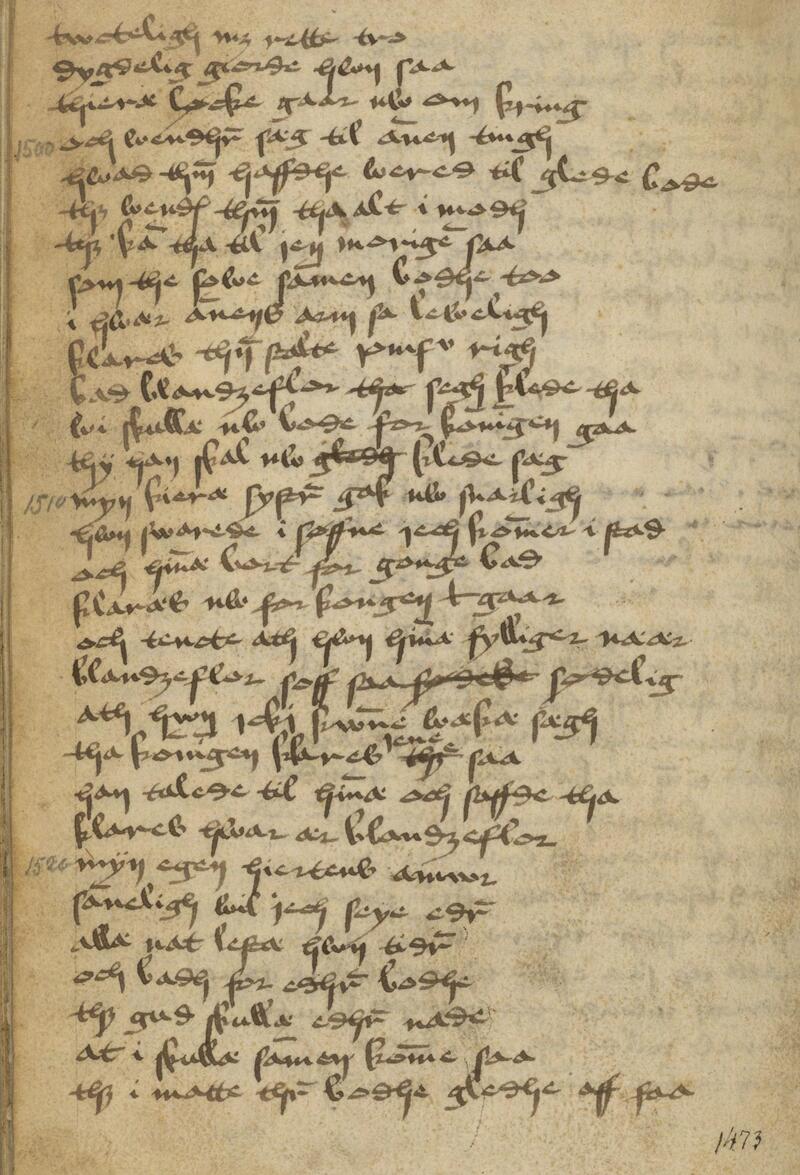 twoteligh mz rette tro
dygdelig giorde hwn saa
thieræ løcke gaar nw om kring
1500 och wendhr̄ sæg til ānen tingh
hwad thm̄ haffdhe wered til glede bode
thz wendh thm̄ tha alt i modh
thz kā tha til jen morigē saa
som the søwe sāmen bodhe too
i hwar ānens arm sa leweligh
klares thn̄ stalte righ
bad blandzeflor tha segh klede tha
wi skullæ nw bode for kōnigen gaa
thy han skal nw gledh klede sæg
1510 myn kieræ systr̄ gak nw snarligh
hwn swarede i søffne jech kōmer i stad
och hīnæ bort for gonge bad
klaræs nw for kongen t gaar
och tencte ath hwn hīnæ fylliger næær
blandzeflor soff saa sødelig
ath hwn jcki kwnē wækæ sægh
tha kōnigen klares jene the saa
han talede til hīnæ och saffde tha
klares hwar ær blandzeflor
1520 myn egen hiertens amwr
sāneligh wil jech seye edr̄
allæ nat lestæ hwn tidr̄
och badh for edhr̄ bodhe
thz gud skullæ edhr̄ nade
at i skullæ sāmen kōme saa
thz i matte thr̄ bodhe gledhe aff faa
1473